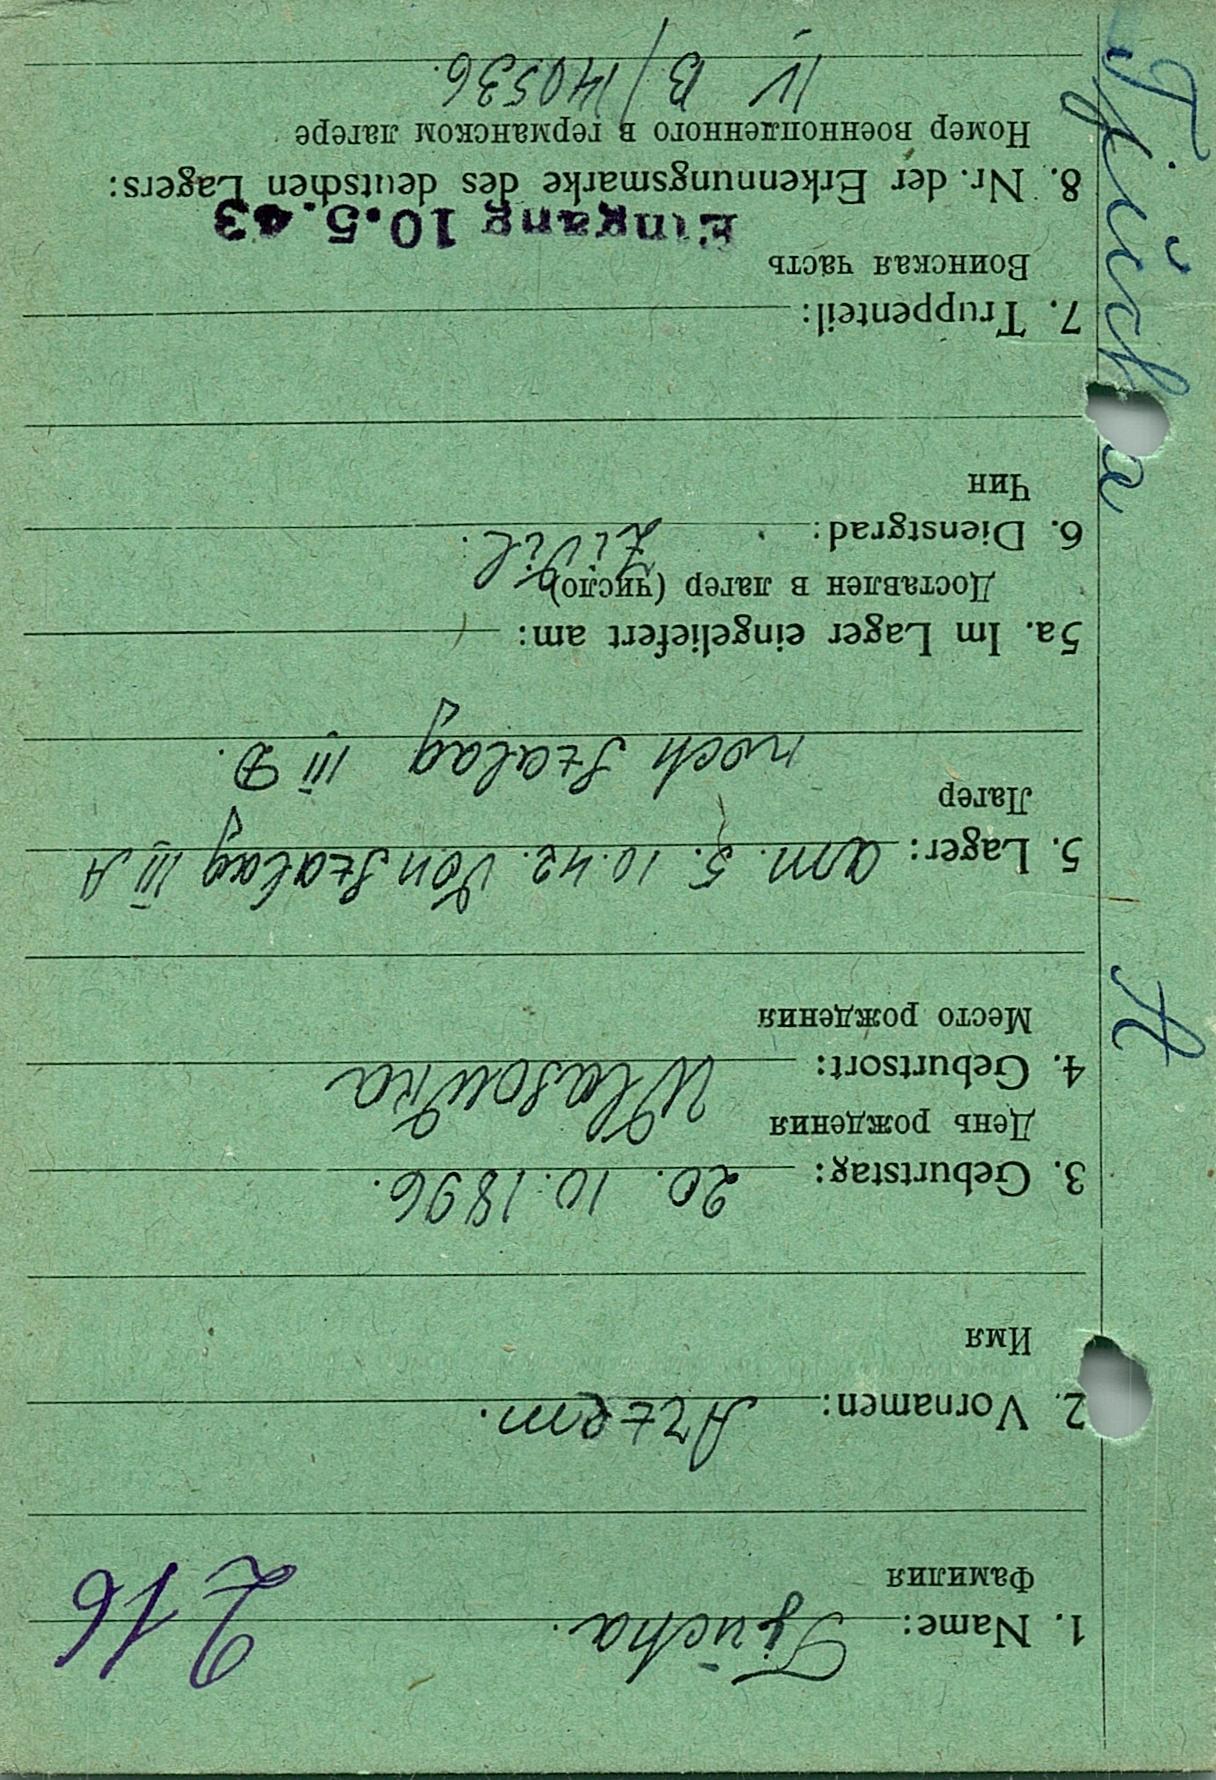 216
1. Name: Tjucha.
Фамилия
2. Vornamen: Artem.
Имя
3. Geburtstag: 20. 10. 1896.
День рождения
4. Geburtsort: Wlasowka
Место рождения
5. Lager: am. 5. 10. 42. von Stalag III A
Лагер
noch Stalag III D.
5a. Im Lager eingeliefert am:
Доставлен в лагер (число)
6. Dienstgrad: Zivil.
Чин
7. Truppenteil:
Воинская часть
Eingang 10.5.43
8. Nr. der Erkennungsmarke des deutschen Lagers:
Номер военнопленного в германском лагере
IV B/140536.
A Tjucha